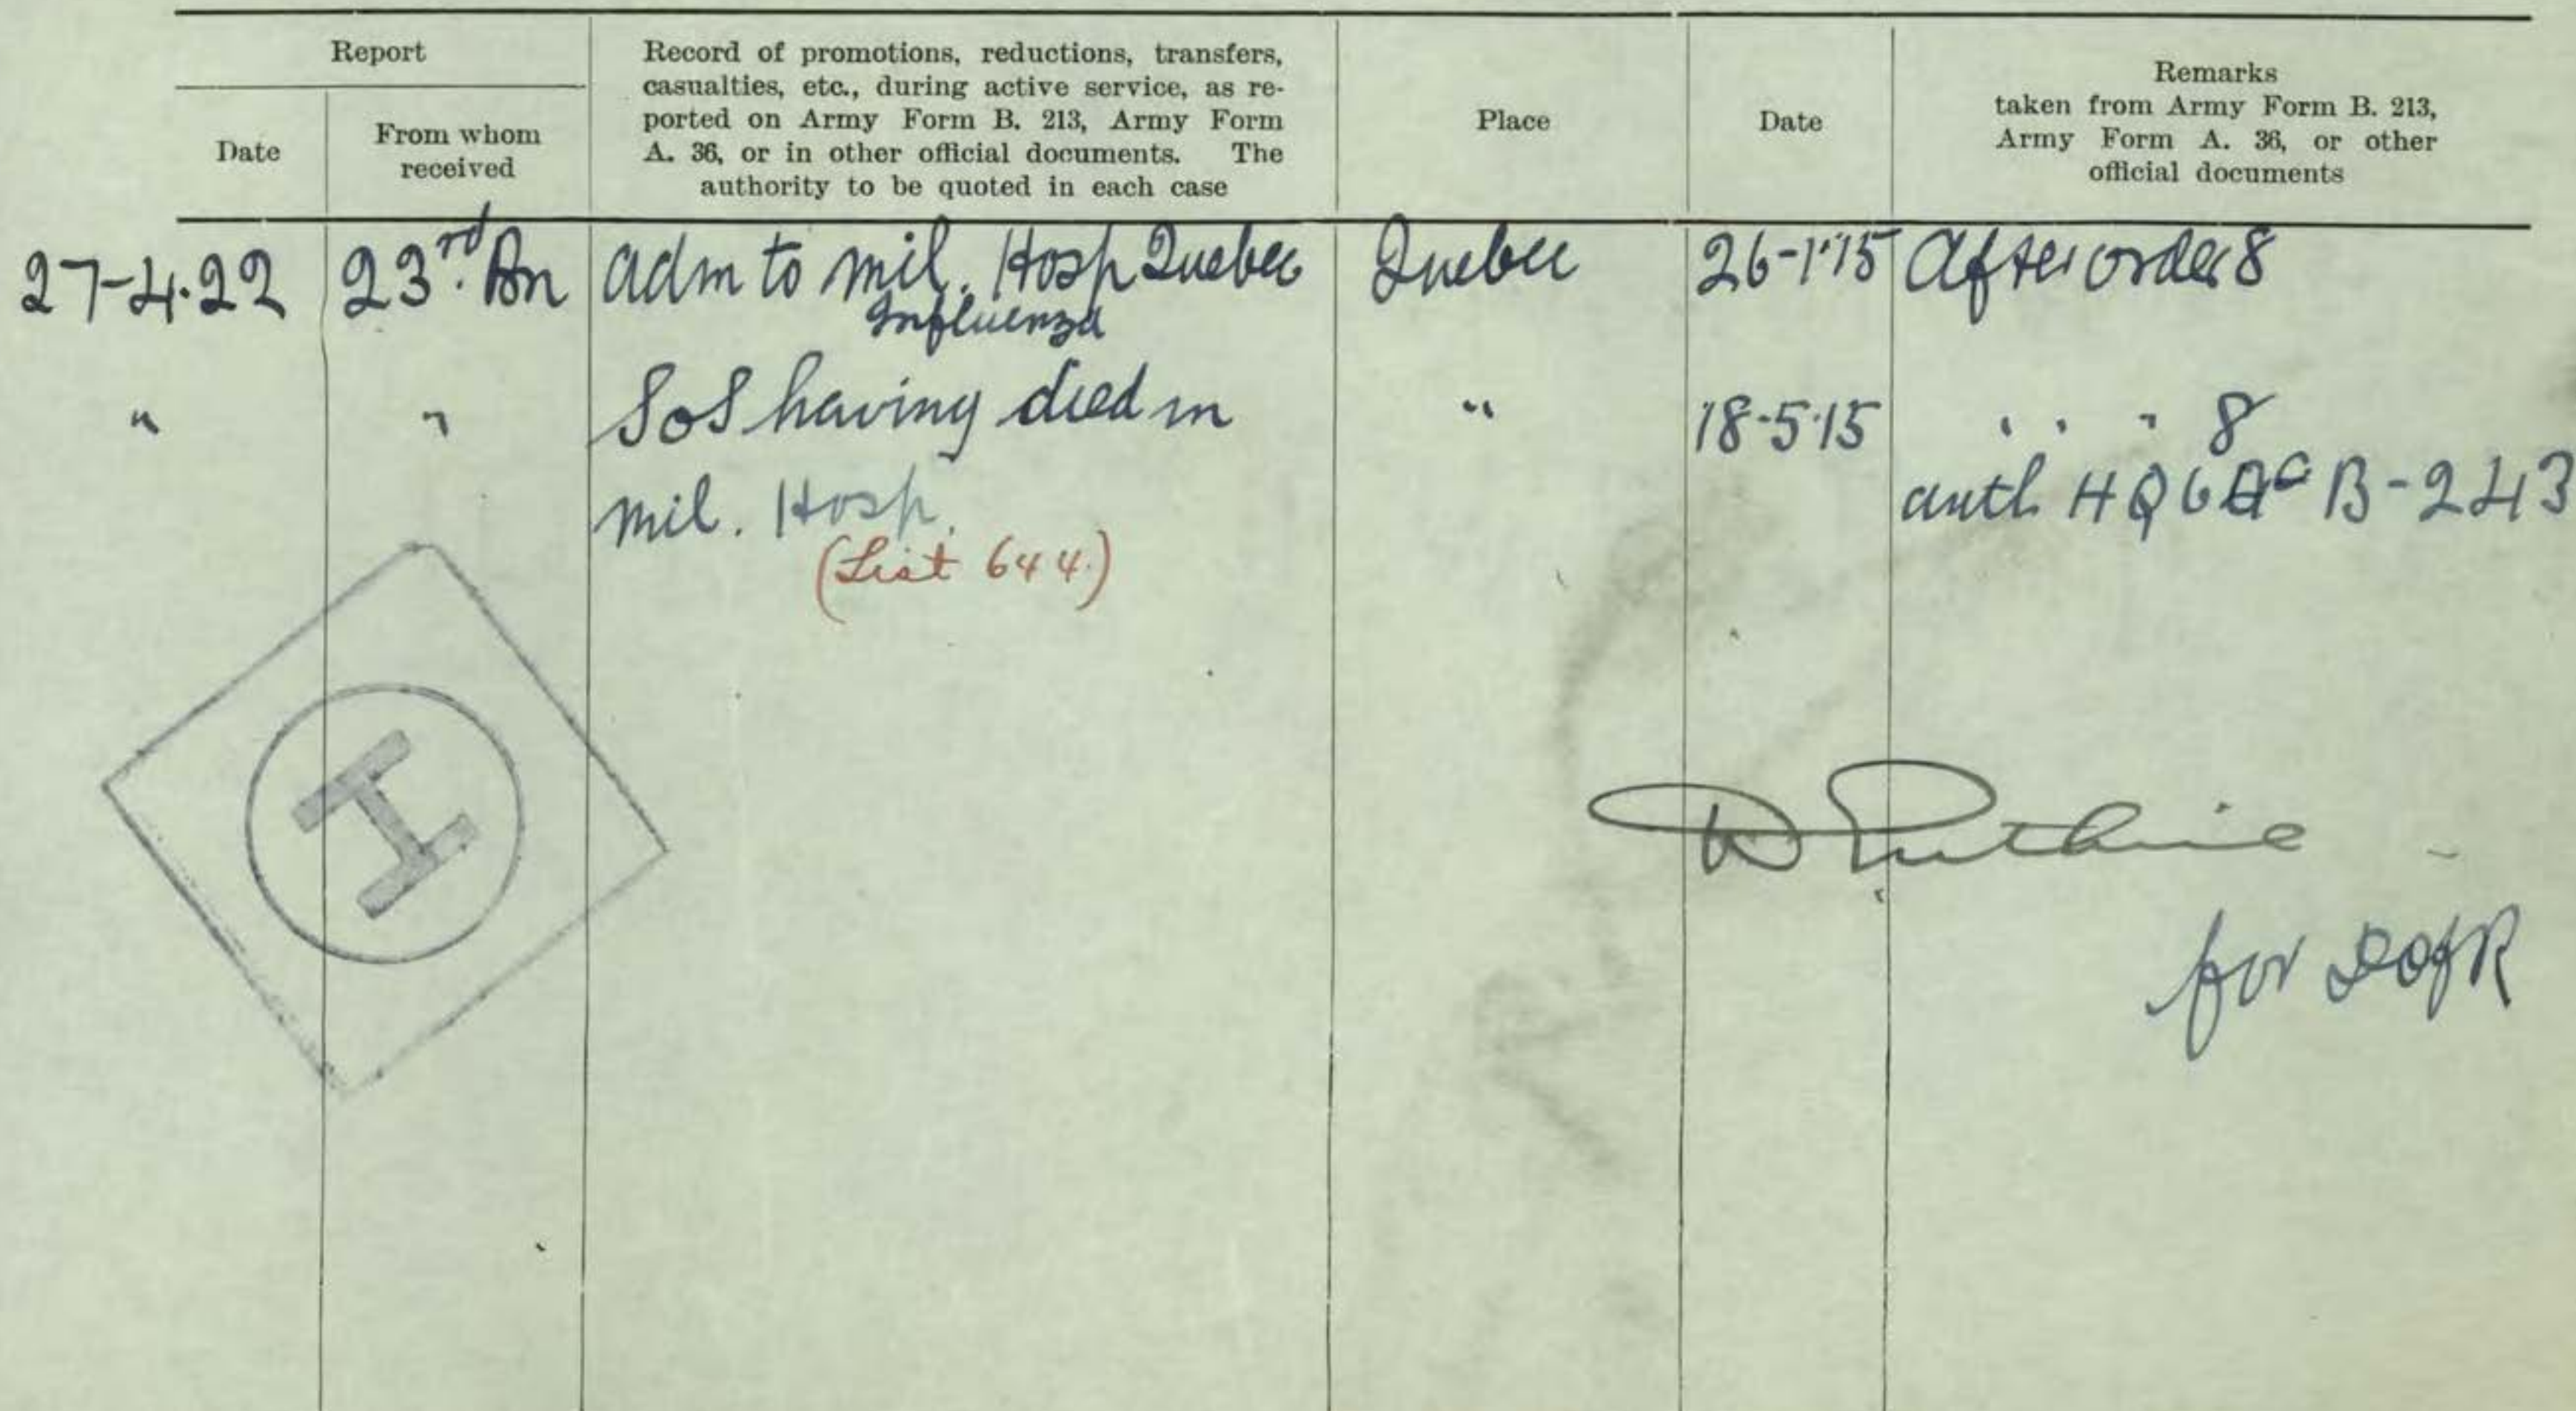 Report
Date
From whom
received
Record of promotions, reductions, transfers,
casualties, etc., during active service, as re-
ported on Army Form B. 213, Army Form
A. 36, or in other official documents. The
authority to be quoted in each case
Place
Date
Remarks
taken from Army Form B. 213,
Army Form A. 36, or other
official documents
27-4.22 23rd. Bn adm to mil. Hosp Quebec Quebec 26-1-15 After order 8
Influenza
" " SoS having died in " 18-5-15 " " " 8
mil. Hosp. auth HQ B-243
(List 644.)
H
for DofR